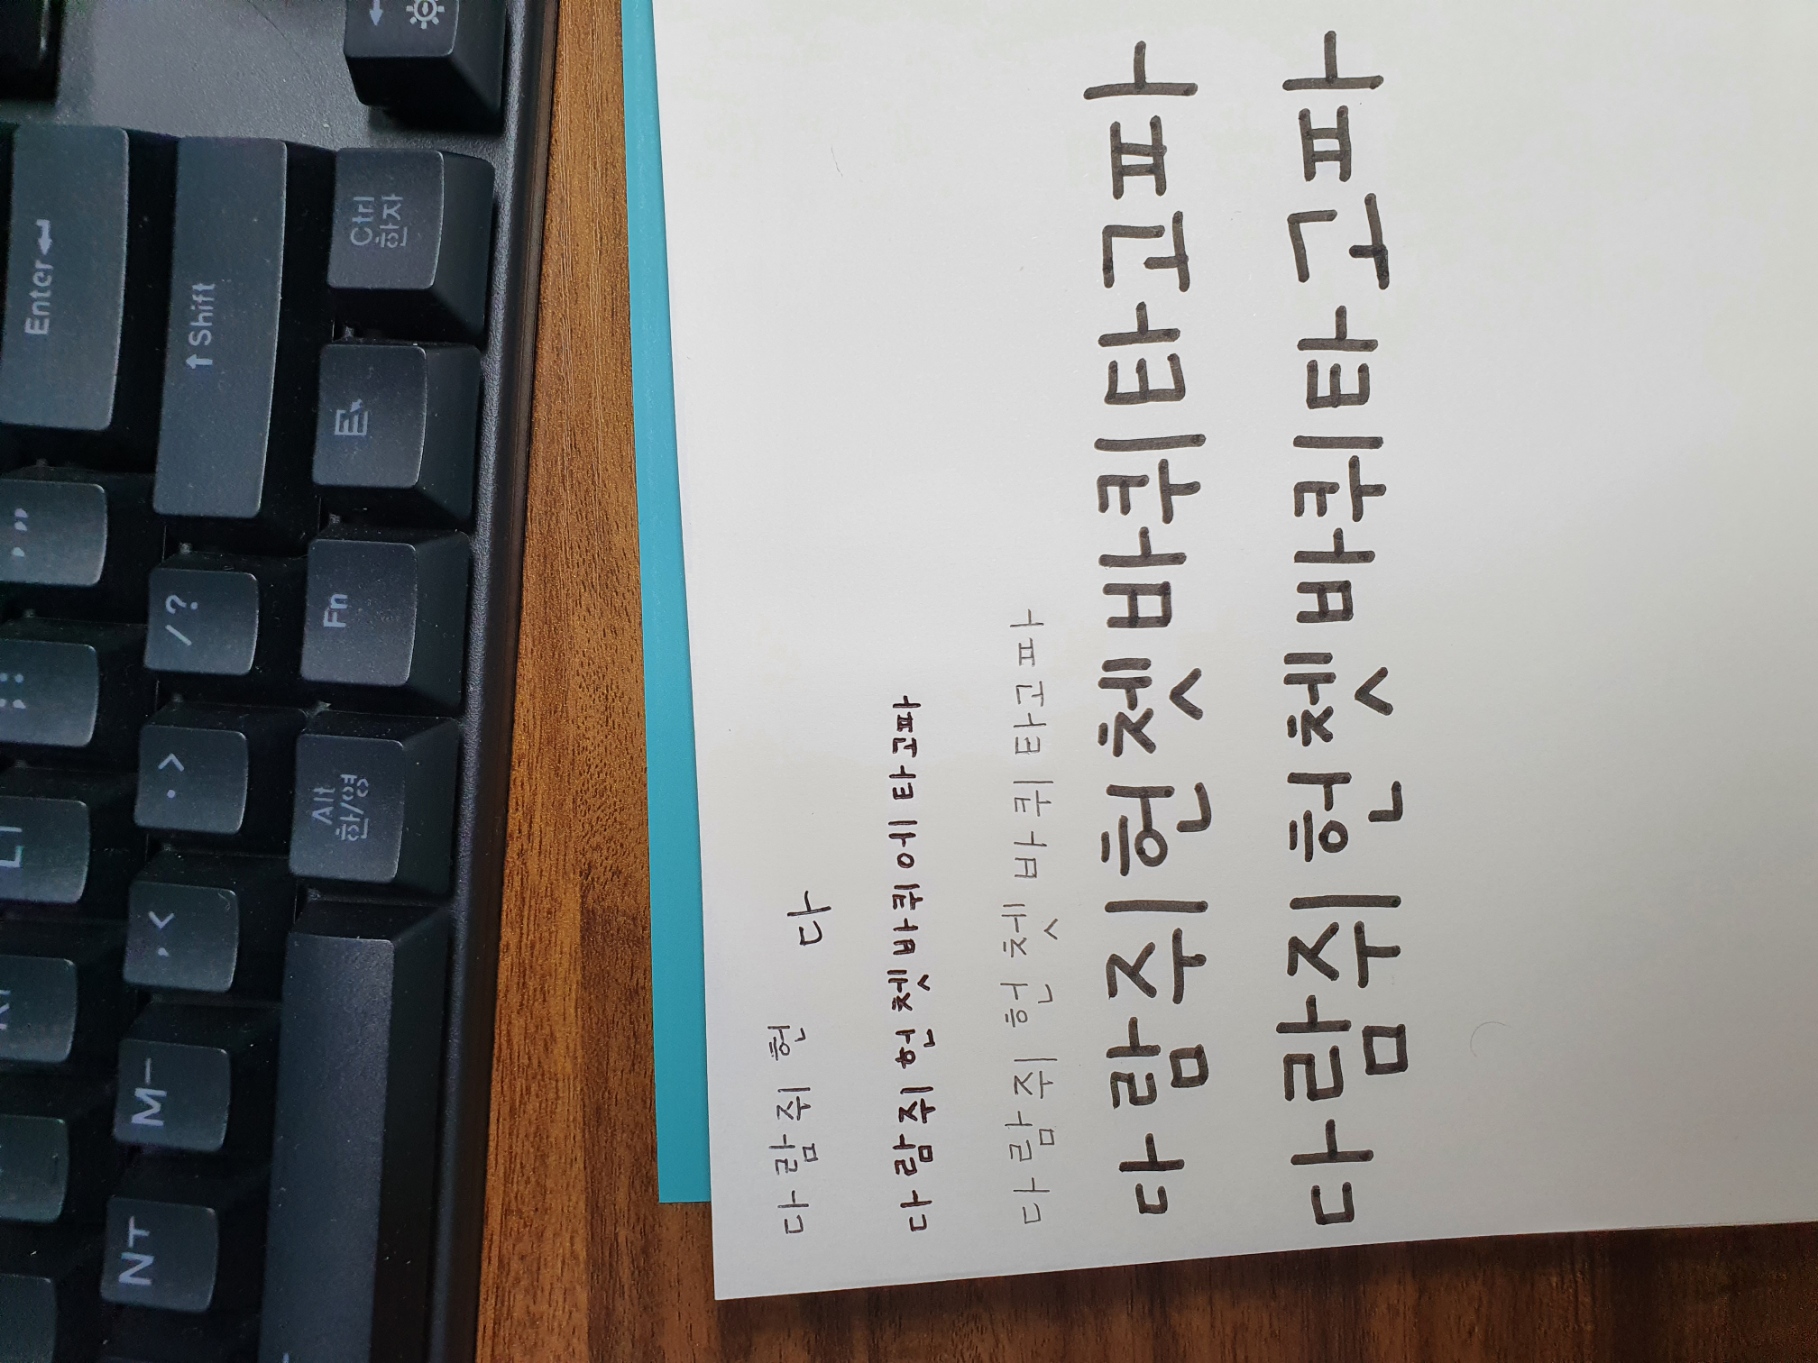 Enter
N ㅜ M ㅡ , < . > / ? Shift
Alt 한/영 Fn Ctrl 한자
다람쥐 헌 다
다람쥐 헌 쳇바퀴에 타고파
다람쥐 헌 쳇바퀴 타고파
다람쥐헌쳇바퀴타고파
다람쥐헌쳇바퀴타고파